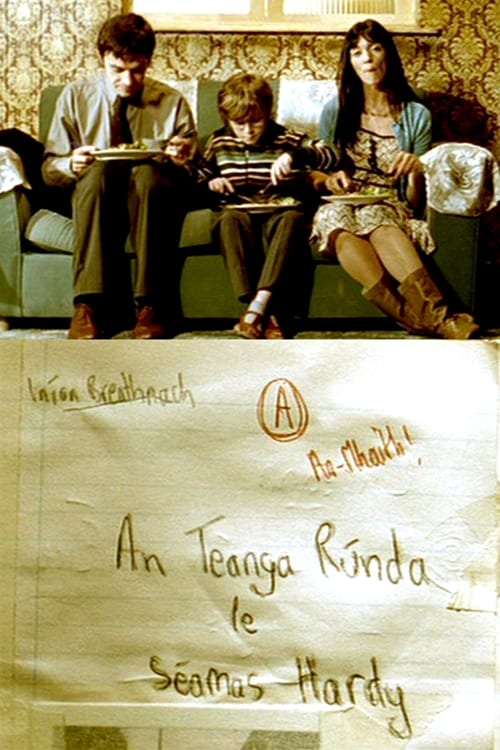 Iníon Breathnach
A
An-Mhaith!
An Teanga Rúnda
le
Séamas Hardy